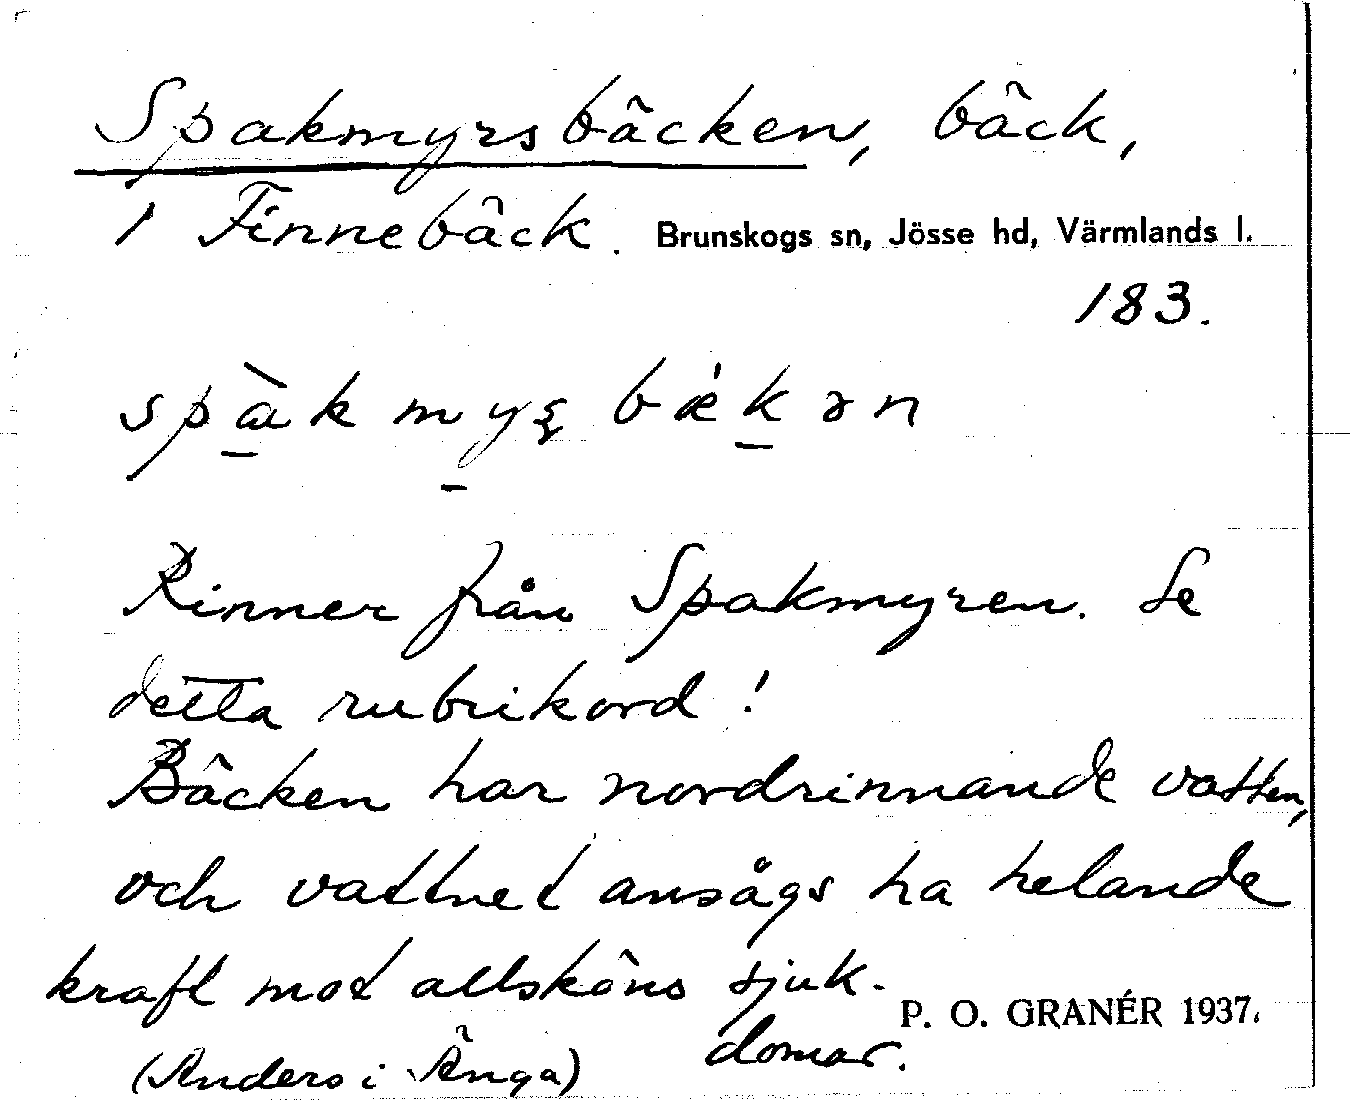 Spakmyrsbäcken, bäck,
i Finnebäck. Brunskogs sn, Jösse hd, Värmlands l.
183.
spàkmyʂbǽkən
Rinner från Spakmyren. Se
detta rubrikord!
Bäcken har nordrinnande vatten,
och vattnet ansågs ha helande
kraft mot allsköns sjuk-
domar. P. O. GRANÉR 1937.
(Anders i Änga)